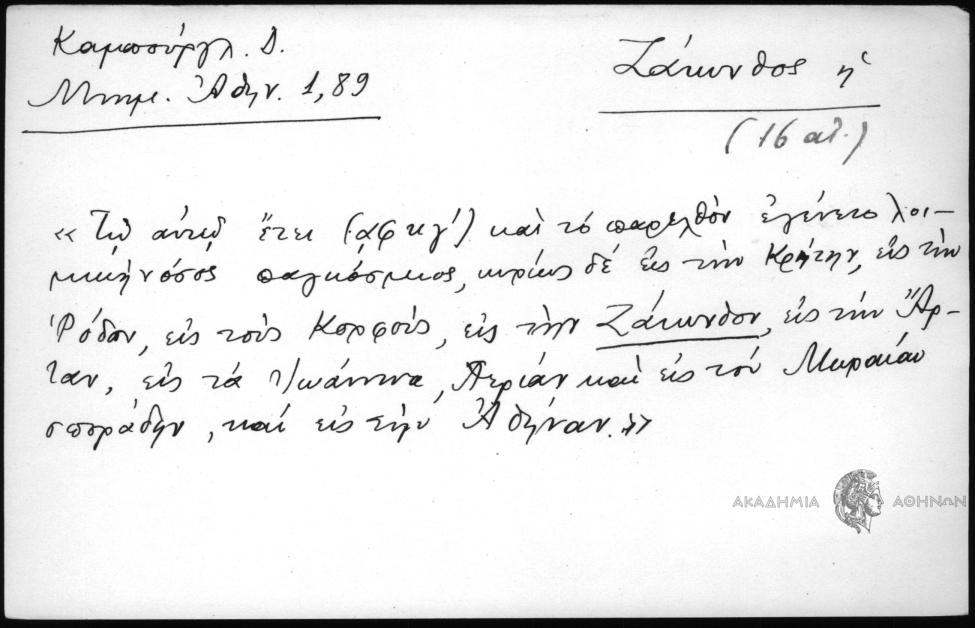 Καμπούργλ. Δ.
Μνημ. Ἀθην. 1, 89
Ζάκυνθος ἡ
(16 αἰ.)
«Τῷ αὐτῷ ἔτει (͵αφκγ΄) καὶ τό παρελθόν ἐγένετο λοι-
μική νόσος παγκόσμιος, κυρίως δέ εἰς τήν Κρήτην, εἰς τήν
Ῥόδον, εἰς τούς Κορφούς, εἰς τήν Ζάκυνθον, εἰς τήν Ἄρ-
ταν, εἰς τά Ἰωάννινα, καί εἰς τόν
σποράδην, καί εἰς τήν Ἀθήναν.»
ΑΚΑΔΗΜΙΑ ΑΘΗΝΩΝ